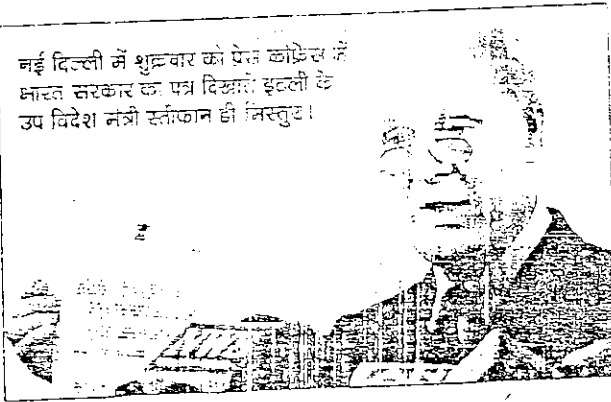 नई दिल्ली में शुक्रवार को प्रेस कांफ्रेंस में
भारत सरकार का पत्र दिखाते इटली के
उप विदेश मंत्री स्तीफान डी मिस्तुरा।